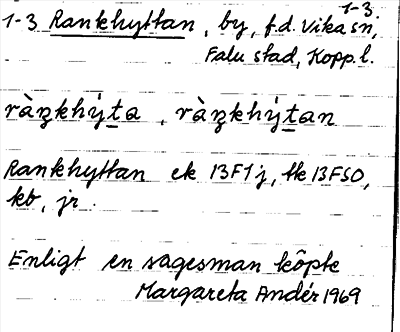 1-3.
1-3 Rankhyttan, by, f.d. Vika sn,
Falu stad, Kopp.l.
ràŋkhýt̲a, ràŋkhýt̲an
Rankhyttan ek 13F1j, tk 13FSO,
kb, jr.
Enligt en sagesman köpte
Margareta Andér 1969